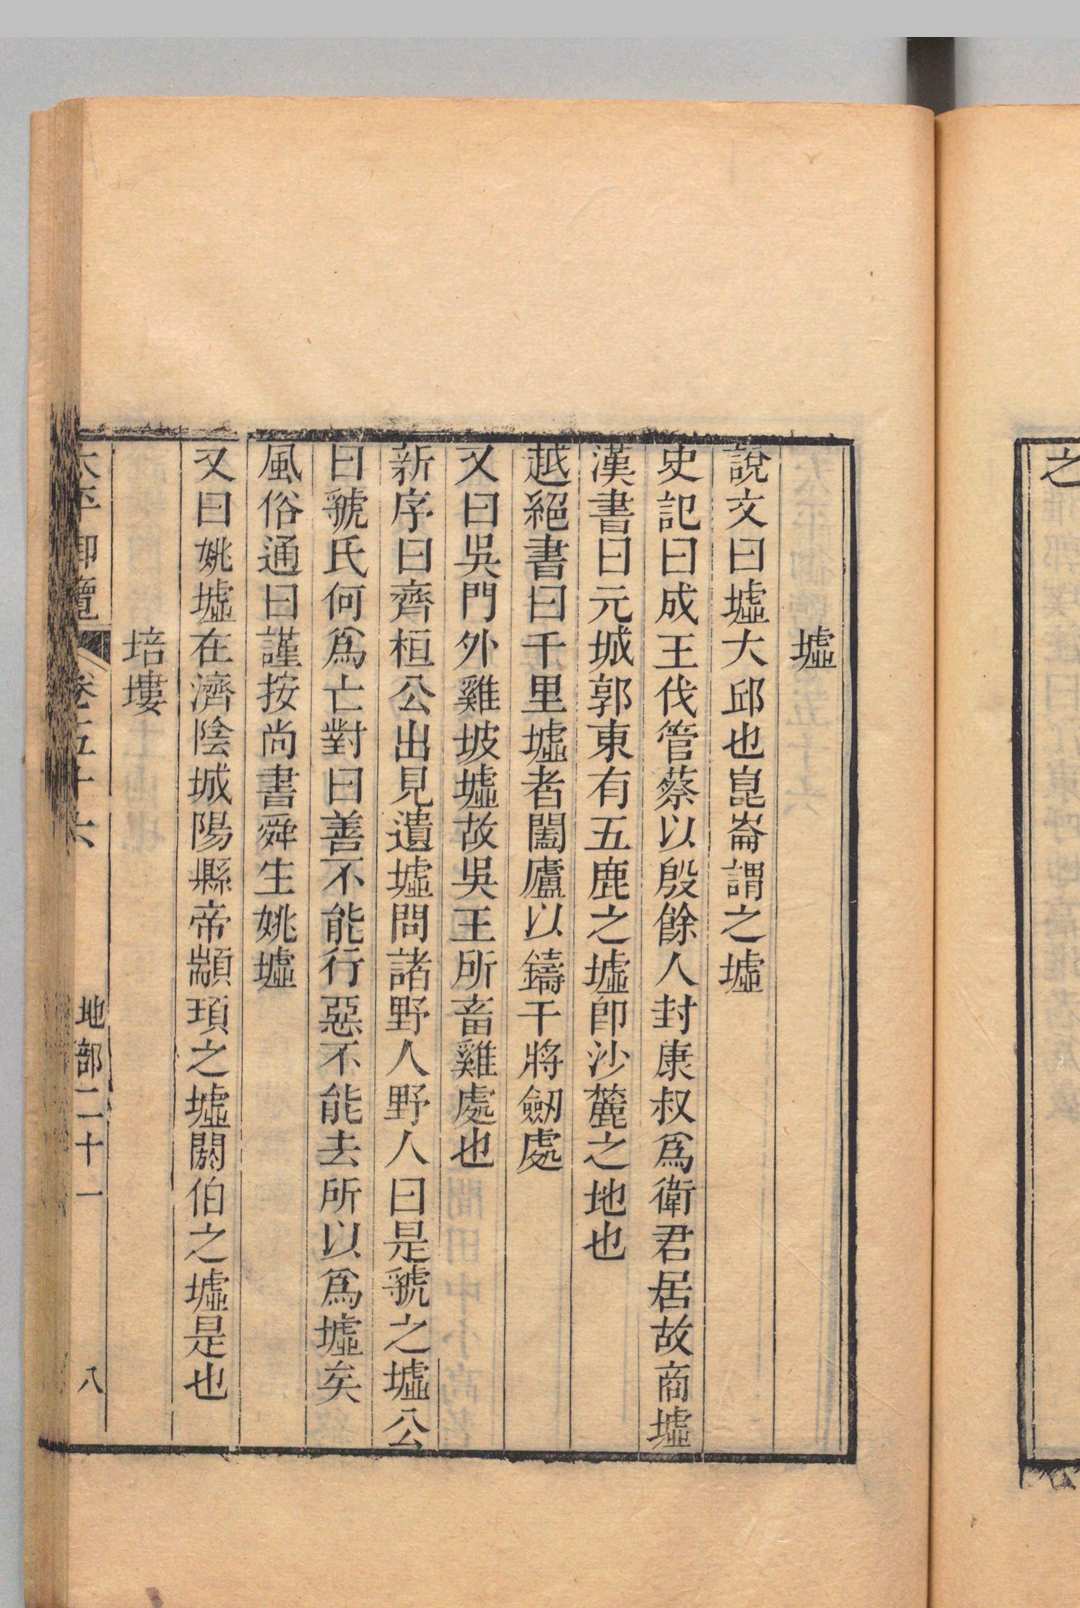 之
墟
說文曰墟大邱也崑崙謂之墟
史記曰成王伐管蔡以殷餘人封康叔爲衛君居故商墟
漢書曰元城郭東有五鹿之墟即沙麓之地也
越絕書曰千里墟者闔廬以鑄干將劒處
又曰吳門外雞坡墟故吳王所畜雞處也
新序曰齊桓公出見遺墟問諸野人野人曰是虢之墟公
曰虢氏何爲亡對曰善不能行惡不能去所以爲墟矣
風俗通曰謹按尚書舜生姚墟
又曰姚墟在濟陰城陽縣帝顓頊之墟閼伯之墟是也
培塿
太平御覽 卷五十六 地部二十一 八